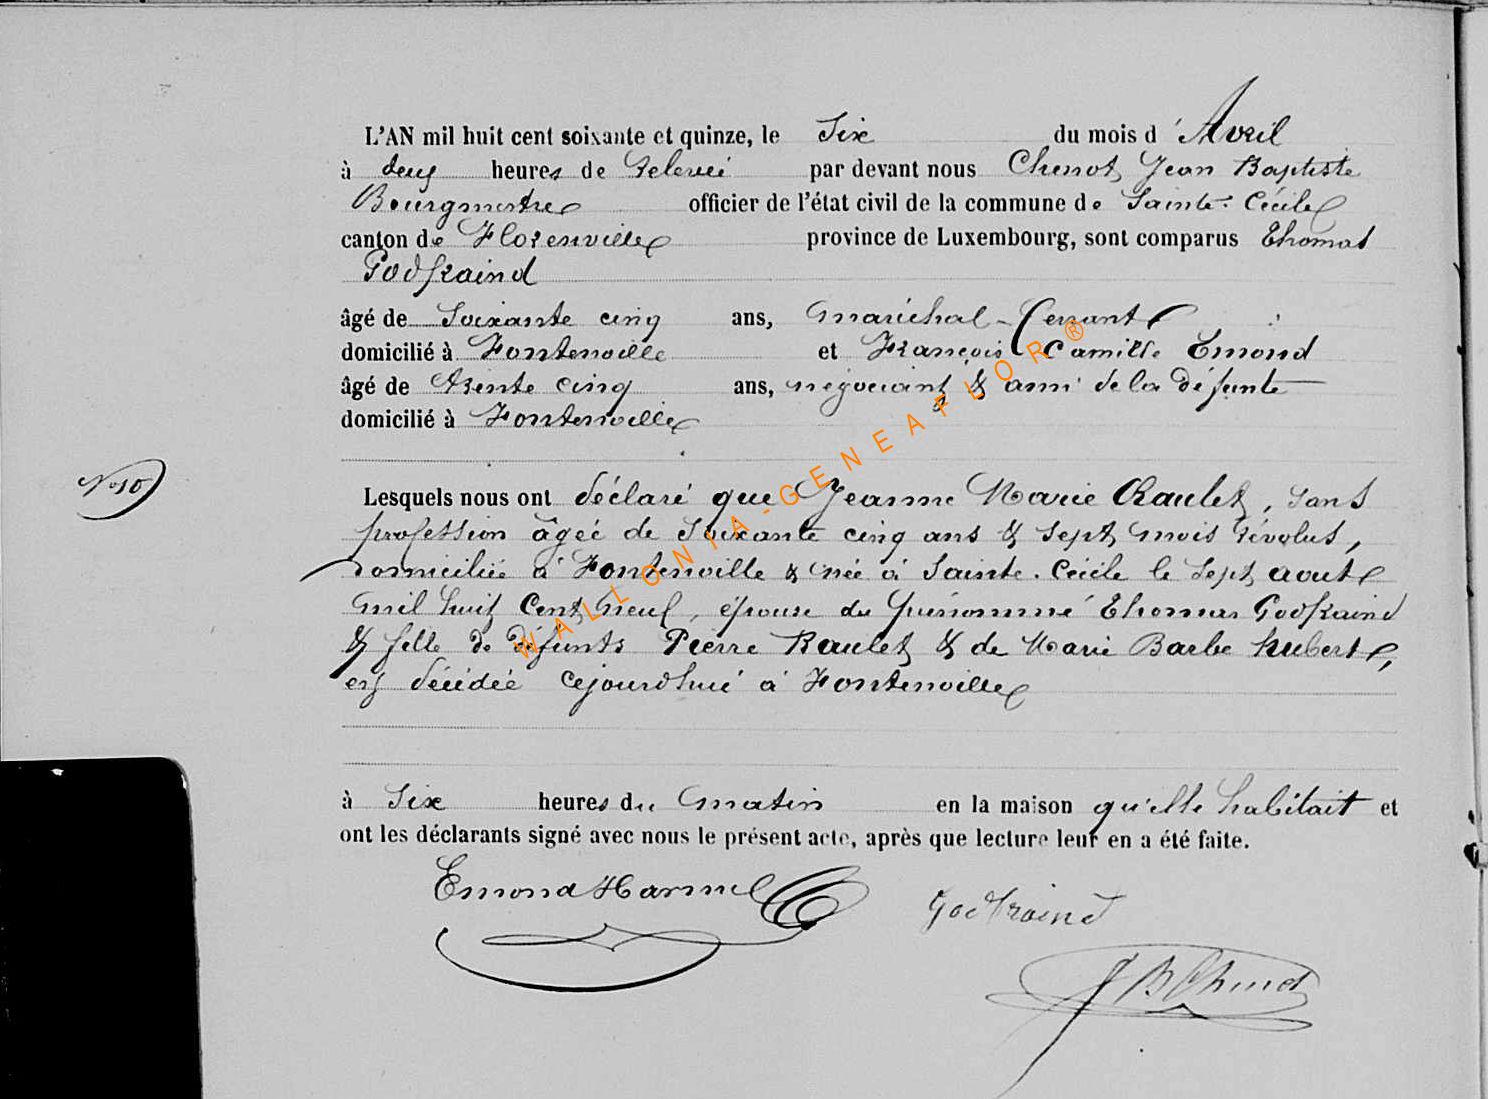 L'AN mil huit cent soixante et quinze, le Six du mois d'Avril
à deux heures de relevée par devant nous Chenot Jean Baptiste
Bourgmestre officier de l'état civil de la commune de Sainte-Cécile
canton de Florenville province de Luxembourg, sont comparus Thomas
Godfraind
âgé de Soixante cinq ans, maréchal-ferrant
domicilié à Fontenoille et François Camille Emond
âgé de trente cinq ans, négociant & ami de la défunte
domicilié à Fontenoille
No 10
Lesquels nous ont déclaré que Jeanne Marie Raulet, sans
profession âgée de Soixante cinq ans & sept mois révolus,
domiciliée à Fontenoille & née à Sainte-Cécile le sept aout
mil huit cent neuf, épouse du prénommé Thomas Godfraind
& fille de défunts Pierre Raulet & de Marie Barbe Hubert,
est décédée cejourd'hui à Fontenoille
à Six heures du matin en la maison qu'elle habitait et
ont les déclarants signé avec nous le présent acte, après que lecture leur en a été faite.
Emond Harmel Godfraind
JB Chenot
WALLONIA-GENEAFLOR®